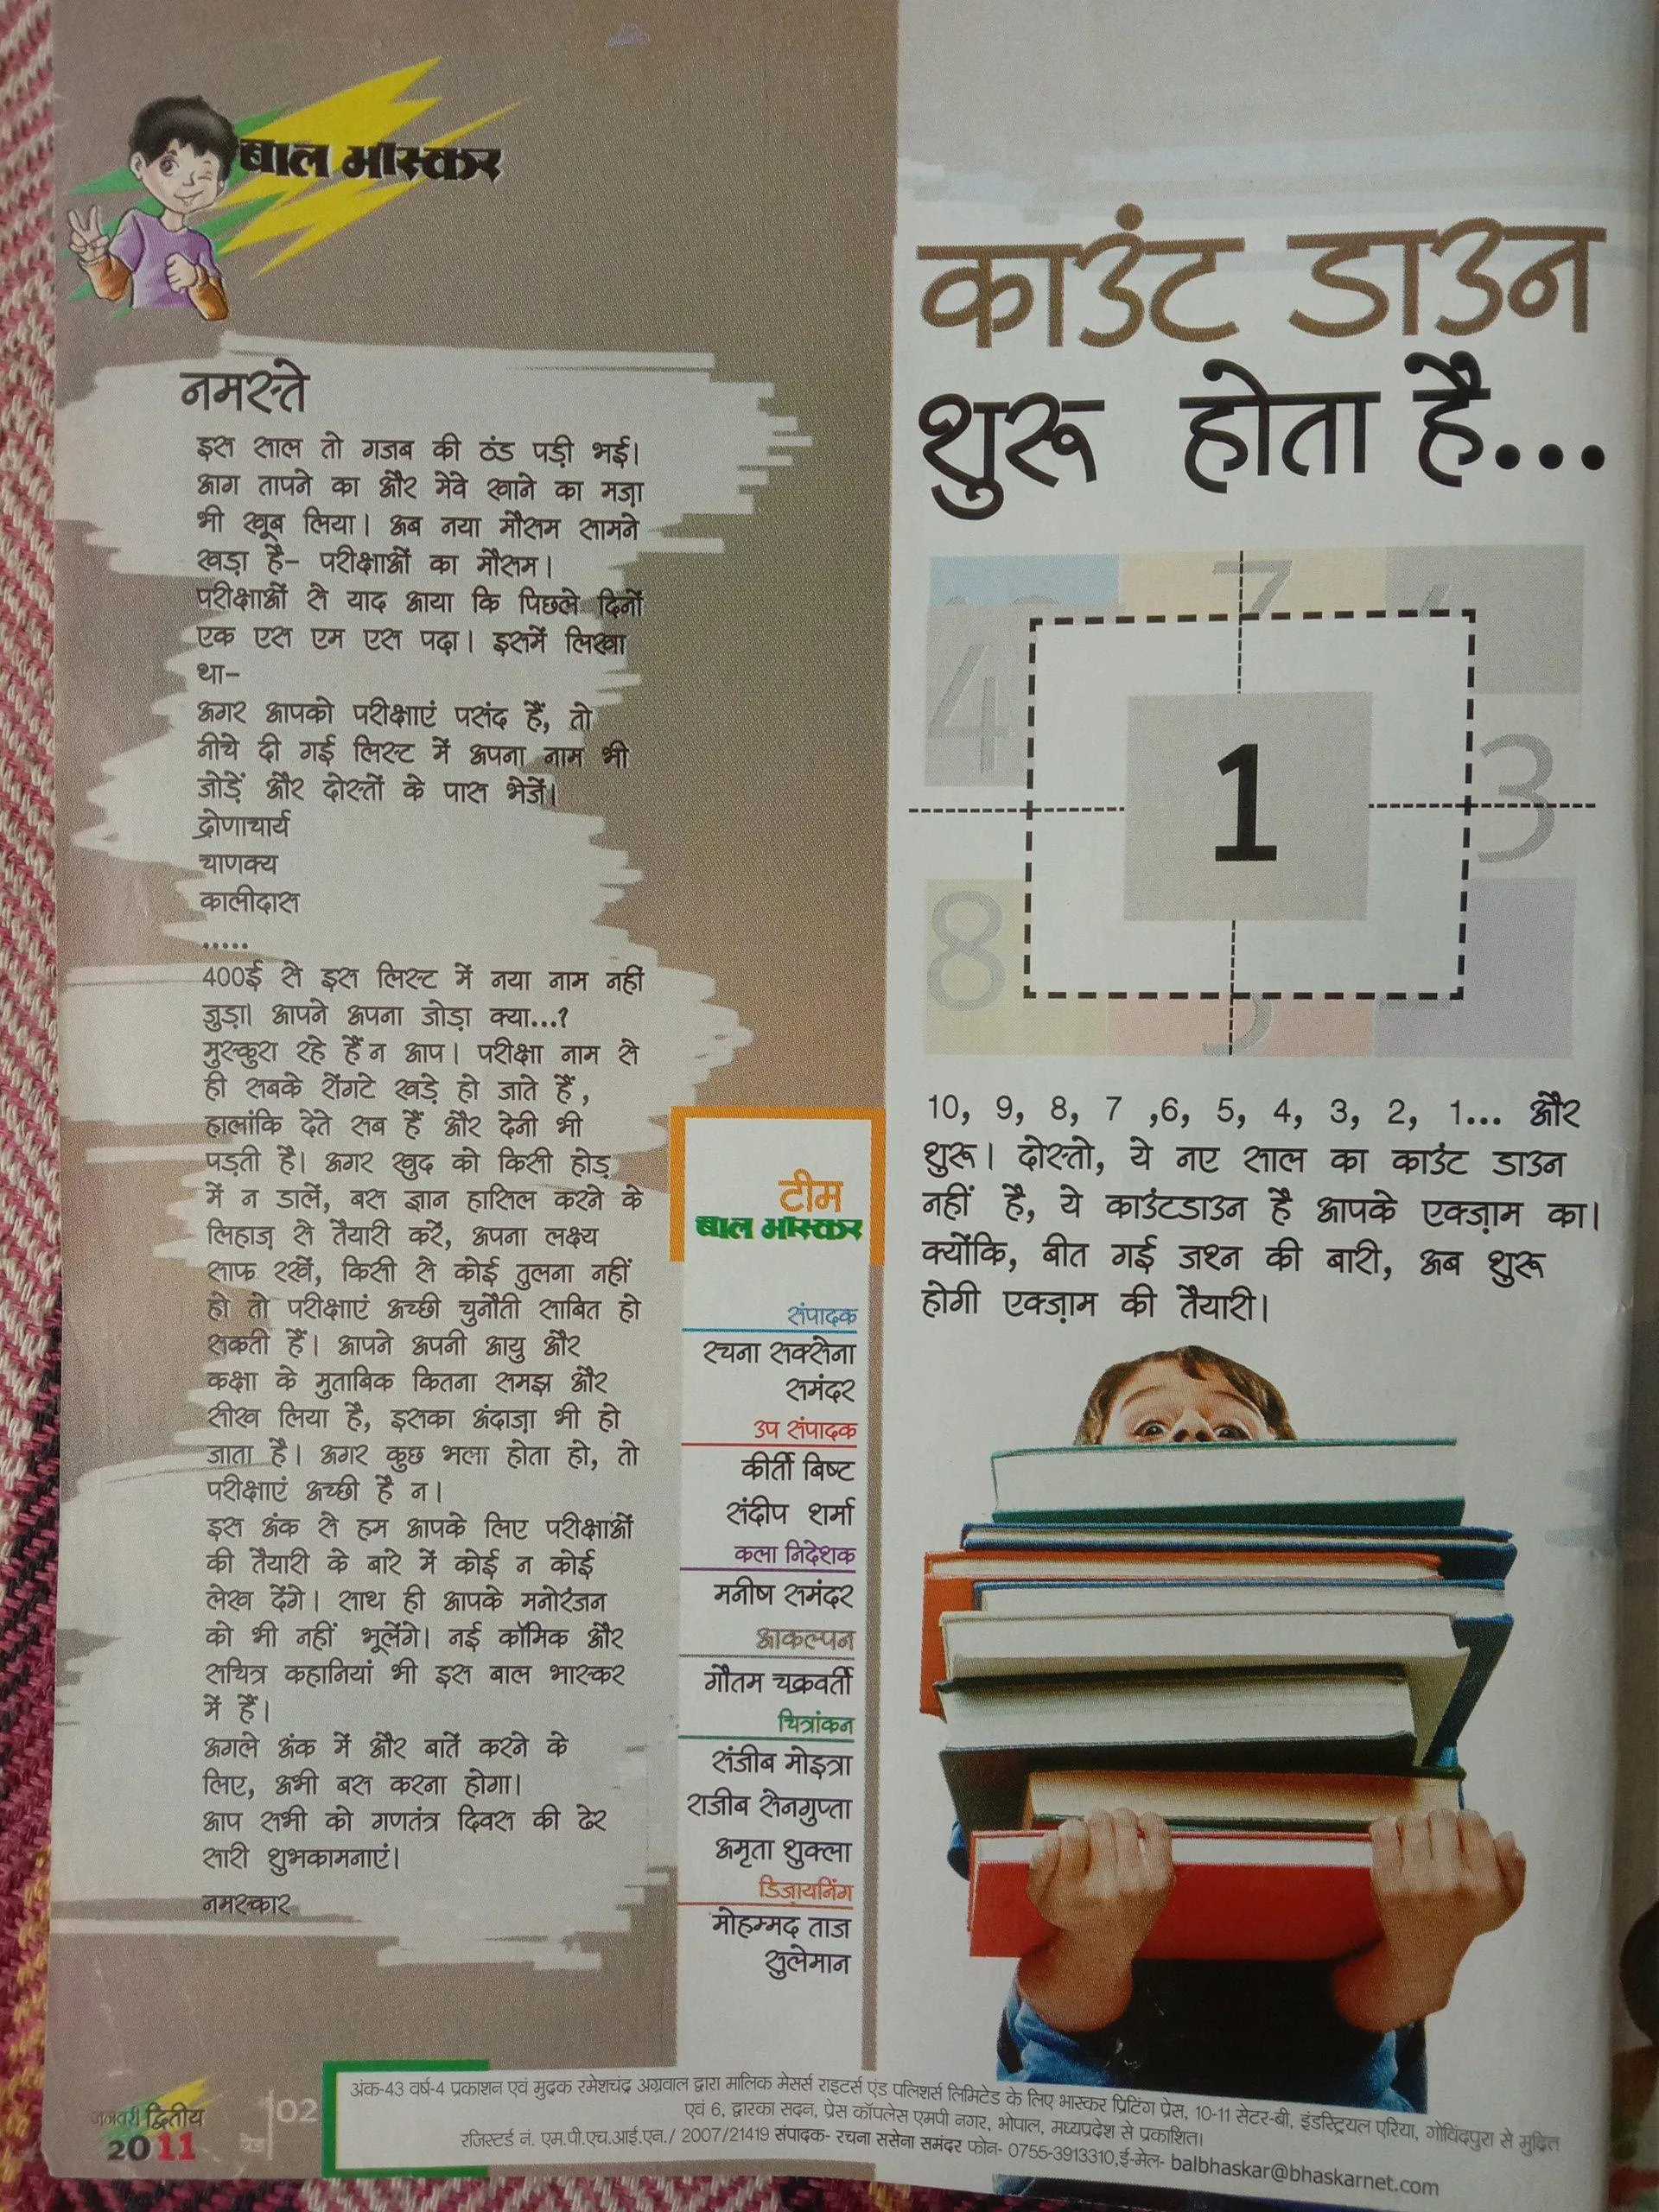 बाल भास्कर
नमस्ते
इस साल तो गजब की ठंड पड़ी भई।
आग तापने का और मेवे खाने का मज़ा
भी खूब लिया। अब नया मौसम सामने
खड़ा है- परीक्षाओं का मौसम।
परीक्षाओं से याद आया कि पिछले दिनों
एक एस एम एस पढ़ा। इसमें लिखा
था-
अगर आपको परीक्षाएं पसंद हैं, तो
नीचे दी गई लिस्ट में अपना नाम भी
जोड़ें और दोस्तों के पास भेजें।
द्रोणाचार्य
चाणक्य
कालीदास
.....
400ई से इस लिस्ट में नया नाम नहीं
जुड़ा। आपने अपना जोड़ा क्या...?
मुस्कुरा रहे हैं न आप। परीक्षा नाम से
ही सबके रोंगटे खड़े हो जाते हैं,
हालांकि देते सब हैं और देनी भी
पड़ती है। अगर खुद को किसी होड़
में न डालें, बस ज्ञान हासिल करने के
लिहाज़ से तैयारी करें, अपना लक्ष्य
साफ रखें, किसी से कोई तुलना नहीं
हो तो परीक्षाएं अच्छी चुनौती साबित हो
सकती हैं। आपने अपनी आयु और
कक्षा के मुताबिक कितना समझ और
सीख लिया है, इसका अंदाज़ा भी हो
जाता है। अगर कुछ भला होता हो, तो
परीक्षाएं अच्छी है न।
इस अंक से हम आपके लिए परीक्षाओं
की तैयारी के बारे में कोई न कोई
लेख देंगे। साथ ही आपके मनोरंजन
को भी नहीं भूलेंगे। नई कॉमिक और
सचित्र कहानियां भी इस बाल भास्कर
में हैं।
अगले अंक में और बातें करने के
लिए, अभी बस करना होगा।
आप सभी को गणतंत्र दिवस की ढेर
सारी शुभकामनाएं।
नमस्कार
टीम
बाल भास्कर
संपादक
रचना सक्सेना
समंदर
उप संपादक
कीर्ती बिष्ट
संदीप शर्मा
कला निदेशक
मनीष समंदर
आकल्पन
गौतम चक्रवर्ती
चित्रांकन
संजीब मोइत्रा
राजीब सेनगुप्ता
अमृता शुक्ला
डिज़ायनिंग
मोहम्मद ताज
सुलेमान
काउंट डाउन
शुरू होता है...
7
4
1
3
8
10, 9, 8, 7 ,6, 5, 4, 3, 2, 1... और
शुरू। दोस्तो, ये नए साल का काउंट डाउन
नहीं है, ये काउंटडाउन है आपके एक्ज़ाम का।
क्योंकि, बीत गई जश्न की बारी, अब शुरू
होगी एक्ज़ाम की तैयारी।
जनवरी द्वितीय
2011
02
अंक-43 वर्ष-4 प्रकाशन एवं मुद्रक रमेशचंद्र अग्रवाल द्वारा मालिक मेसर्स राइटर्स एंड पलिशर्स लिमिटेड के लिए भास्कर प्रिटिंग प्रेस, 10-11 सेटर-बी, इंडस्ट्रियल एरिया, गोविंदपुरा से मुद्रित
एवं 6, द्वारका सदन, प्रेस कॉपलेस एमपी नगर, भोपाल, मध्यप्रदेश से प्रकाशित।
रजिस्टर्ड नं. एम.पी.एच.आई.एन./ 2007/21419 संपादक- रचना ससेना समंदर फोन- 0755-3913310,ई-मेल- balbhaskar@bhaskarnet.com